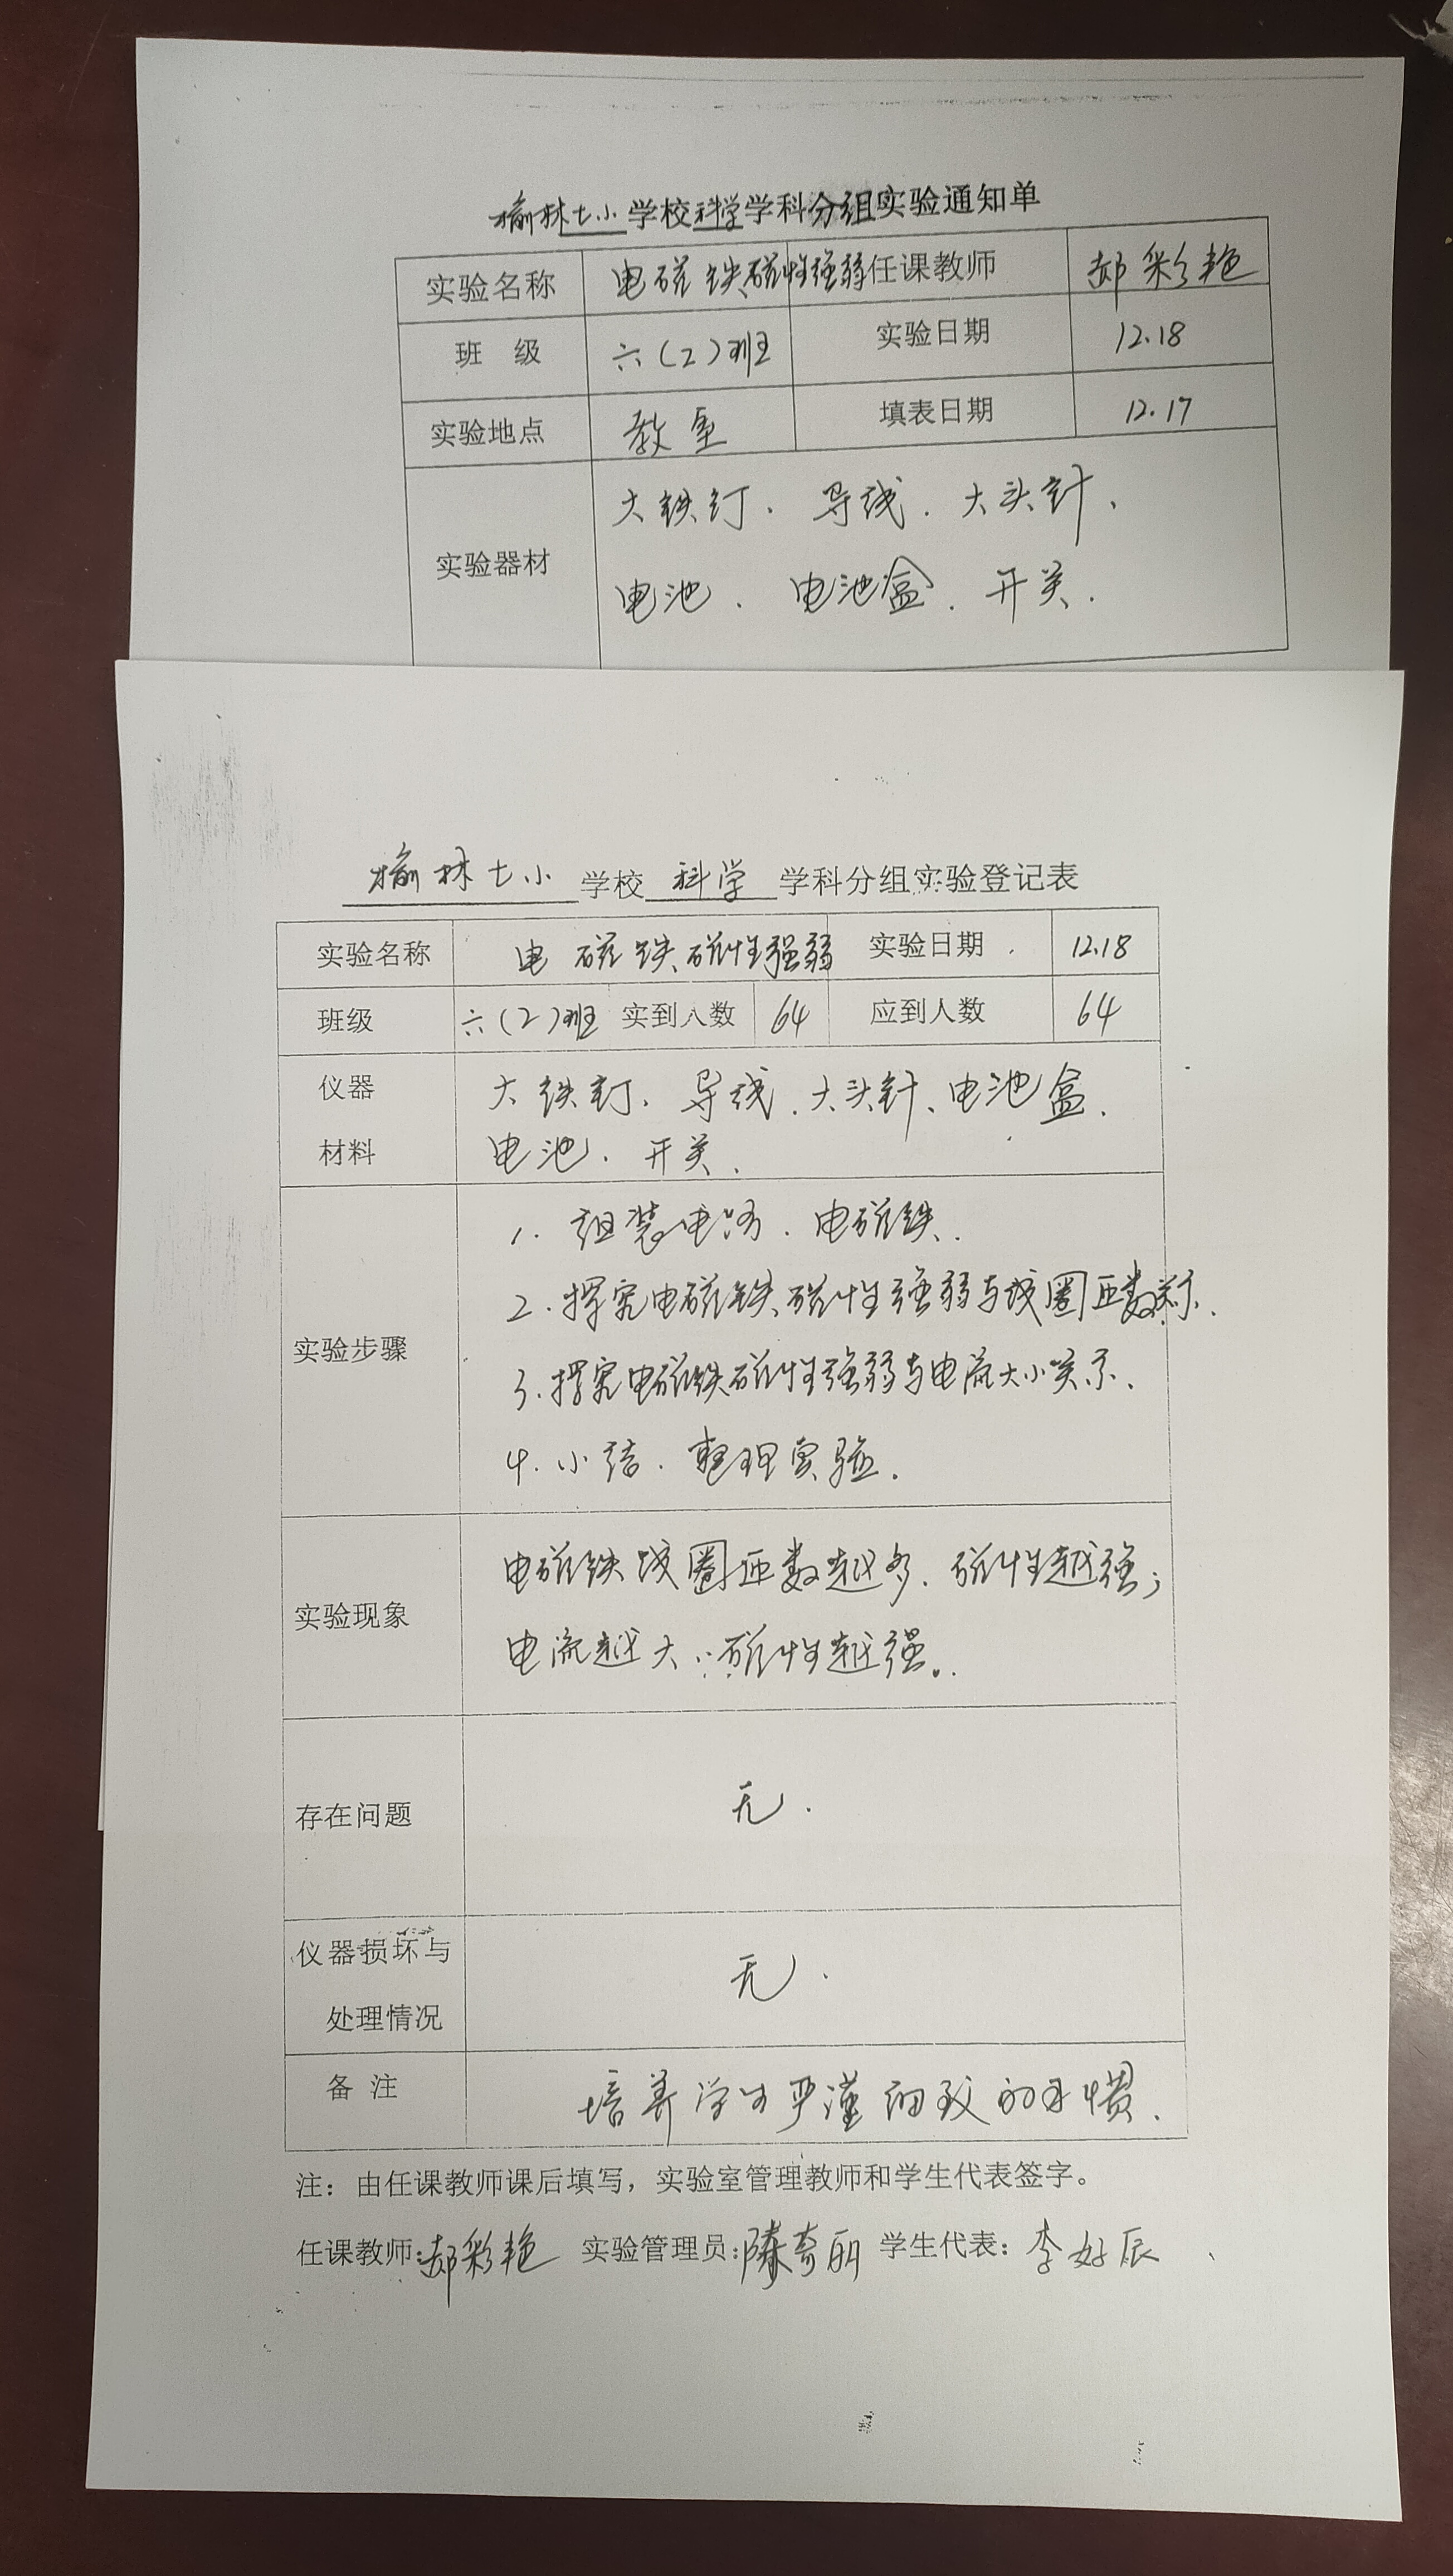 榆林七小学校科学学科分组实验通知单
实验名称 电磁铁磁性强弱 任课教师 郝彩艳
班 级 六(2)班 实验日期 12.18
实验地点 教室 填表日期 12.17
实验器材 大铁钉、导线、大头针、
电池、电池盒、开关.
榆林七小 学校 科学 学科分组实验登记表
实验名称 电磁铁磁性强弱 实验日期 12.18
班级 六(2)班 实到人数 64 应到人数 64
仪器 大铁钉、导线、大头针、电池盒、
材料 电池、开关.
1. 组装电路、电磁铁.
2. 探究电磁铁磁性强弱与线圈匝数关系.
实验步骤
3. 探究电磁铁磁性强弱与电流大小关系.
4. 小结、整理实验.
电磁铁线圈匝数越多、磁性越强;
实验现象
电流越大、磁性越强.
存在问题 无.
仪器损坏与
处理情况 无.
备 注 培养学生严谨细致的习惯.
注：由任课教师课后填写，实验室管理教师和学生代表签字。
任课教师:郝彩艳 实验管理员:陈奇丽 学生代表: 李好辰